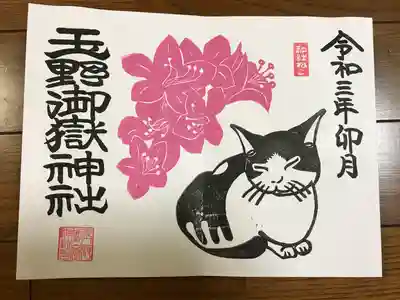 令和三年卯月
玉野御嶽神社